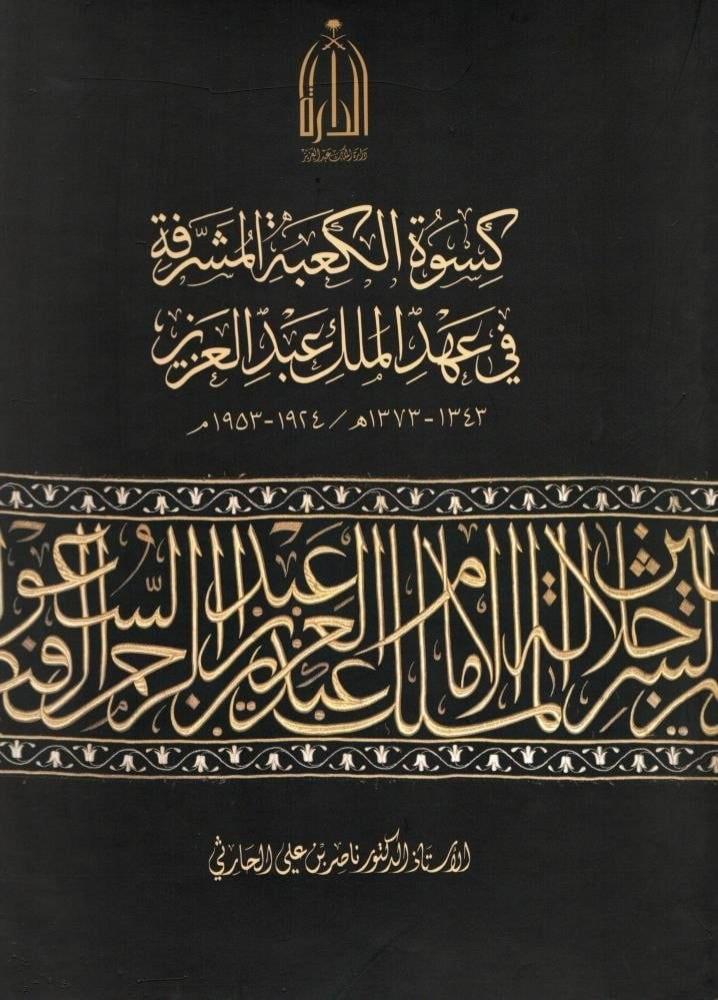 الدارة
دارة الملك عبدالعزيز
كِسوَة الكَعبَة المُشرَّفة
في عَهدِ الملك عَبدِ العَزيز
١٣٤٣-١٣٧٣هـ/١٩٢٤-١٩٥٣م
جلالة الإمام عبد العزيز السعو
الملك عبد الرحمن
الأستاذ الدكتور ناصر بن علي الحارثي